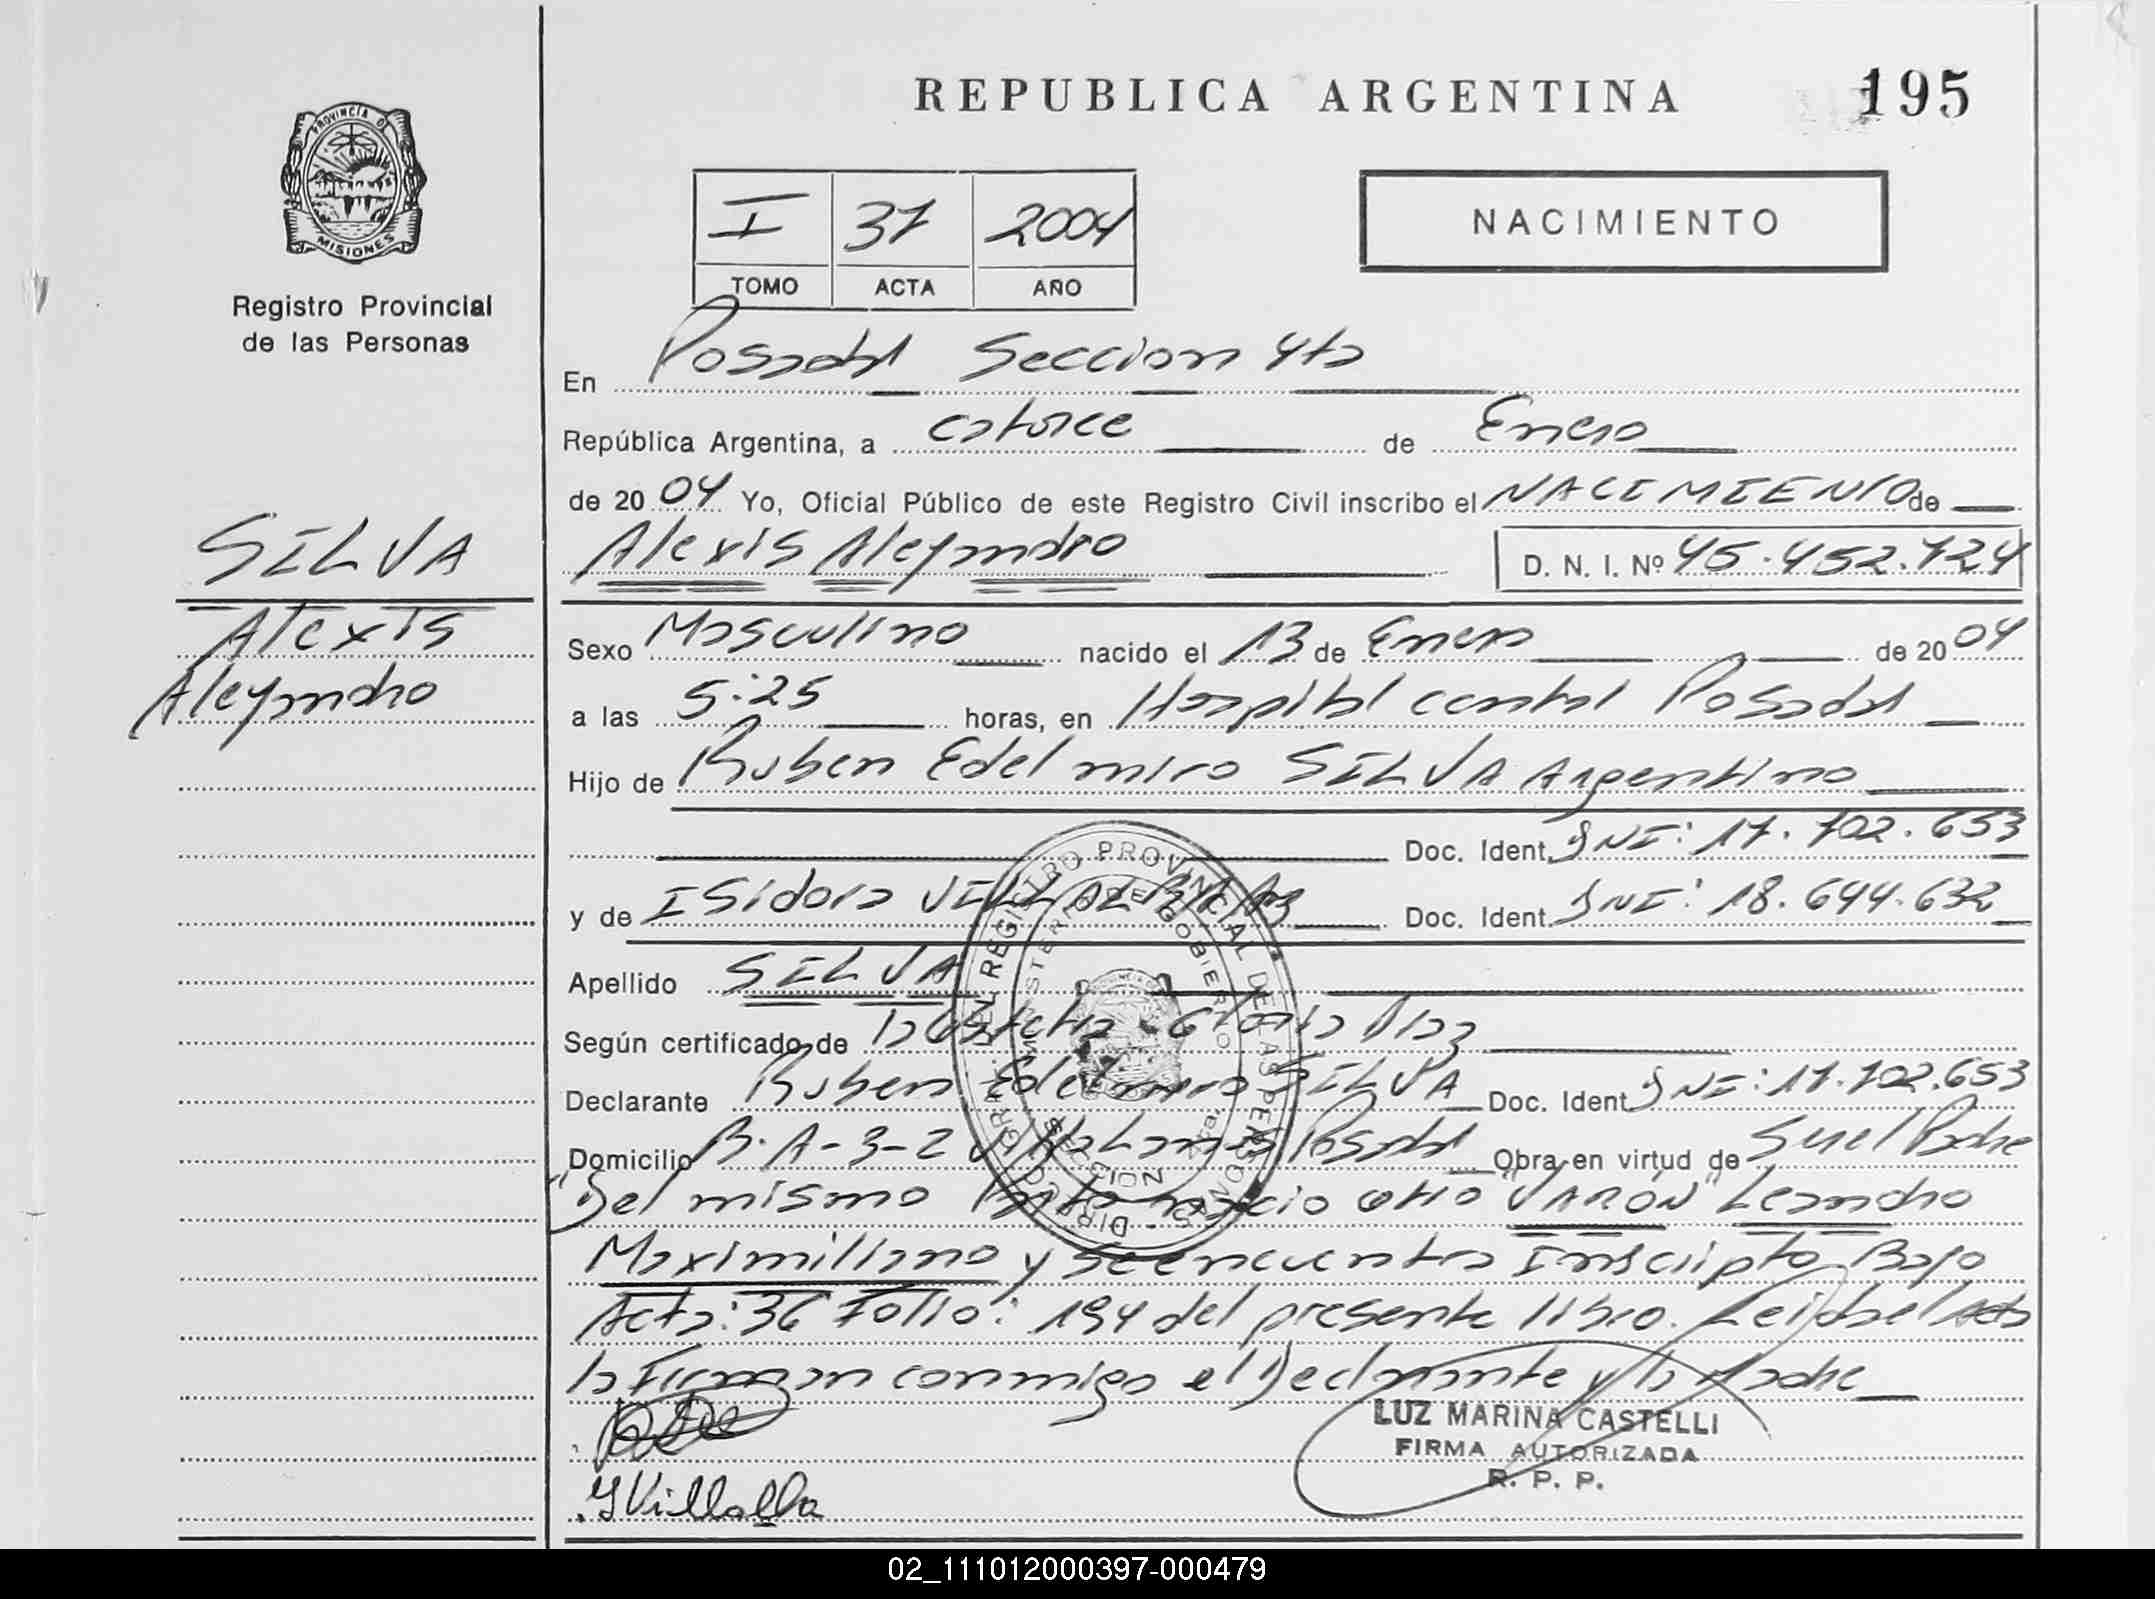 REPUBLICA ARGENTINA 195
PROVINCIA DE
MISIONES
Registro Provincial
de las Personas
I 37 2004
TOMO ACTA AÑO
NACIMIENTO
En Posadas Seccion 4ta
República Argentina, a catorce de Enero
de 2004 Yo, Oficial Público de este Registro Civil inscribo el NACIMIENTO de
Alexis Alejandro D. N. I. Nº 45.452.724
SILVA
Alexis
Alejandro
Sexo Masculino nacido el 13 de Enero de 2004
a las 5:25 horas, en Hospital central Posadas
Hijo de Ruben Edelmiro SILVA Argentino
Doc. Ident. DNI: 17.702.653
y de Isidora VILLALBA Doc. Ident. DNI: 18.644.632
Apellido SILVA
Según certificado de Obstetra Gloria
Declarante Ruben Edelmiro SILVA Doc. Ident. DNI: 17.702.653
Domicilio B.A-3-2 Posadas Obra en virtud de Ser el Padre
"Del mismo Parto nacio otro "VARON" Leandro
Maximiliano y se encuentra Inscripto Bajo
Acta: 36 Folio: 194 del presente libro. Leida el Acta
la Firman conmigo el Declarante y la Madre
LUZ MARINA CASTELLI
FIRMA AUTORIZADA
R. P. P.
Villalba
DIRECC. GRAL. DEL REGISTRO PROVINCIAL DE LAS PERSONAS
MINISTERIO DE GOBIERNO
02_111012000397-000479